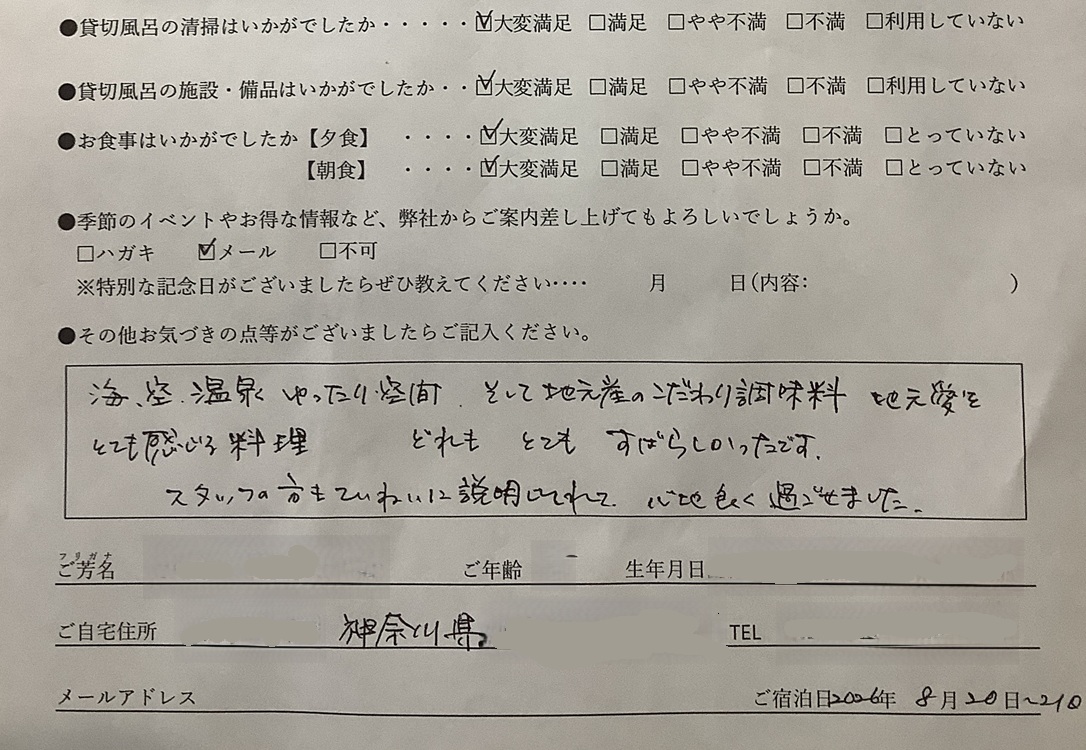 ●貸切風呂の清掃はいかがでしたか・・・・・☑大変満足 □満足 □やや不満 □不満 □利用していない
●貸切風呂の施設・備品はいかがでしたか・・☑大変満足 □満足 □やや不満 □不満 □利用していない
●お食事はいかがでしたか【夕食】 ・・・・☑大変満足 □満足 □やや不満 □不満 □とっていない
【朝食】 ・・・・☑大変満足 □満足 □やや不満 □不満 □とっていない
●季節のイベントやお得な情報など、弊社からご案内差し上げてもよろしいでしょうか。
□ハガキ ☑メール □不可
※特別な記念日がございましたらぜひ教えてください‥‥ 月 日(内容: )
●その他お気づきの点等がございましたらご記入ください。
海、空、温泉 ゆったり空間 そして地元産のこだわり調味料 地元愛を
とても感じる料理 どれも とても すばらしかったです。
スタッフの方もていねいに説明してくれて 心地良く過ごせました。
フリガナ
ご芳名 ご年齢 生年月日
ご自宅住所 神奈川県 TEL
メールアドレス ご宿泊日2026年 8月20日~21日